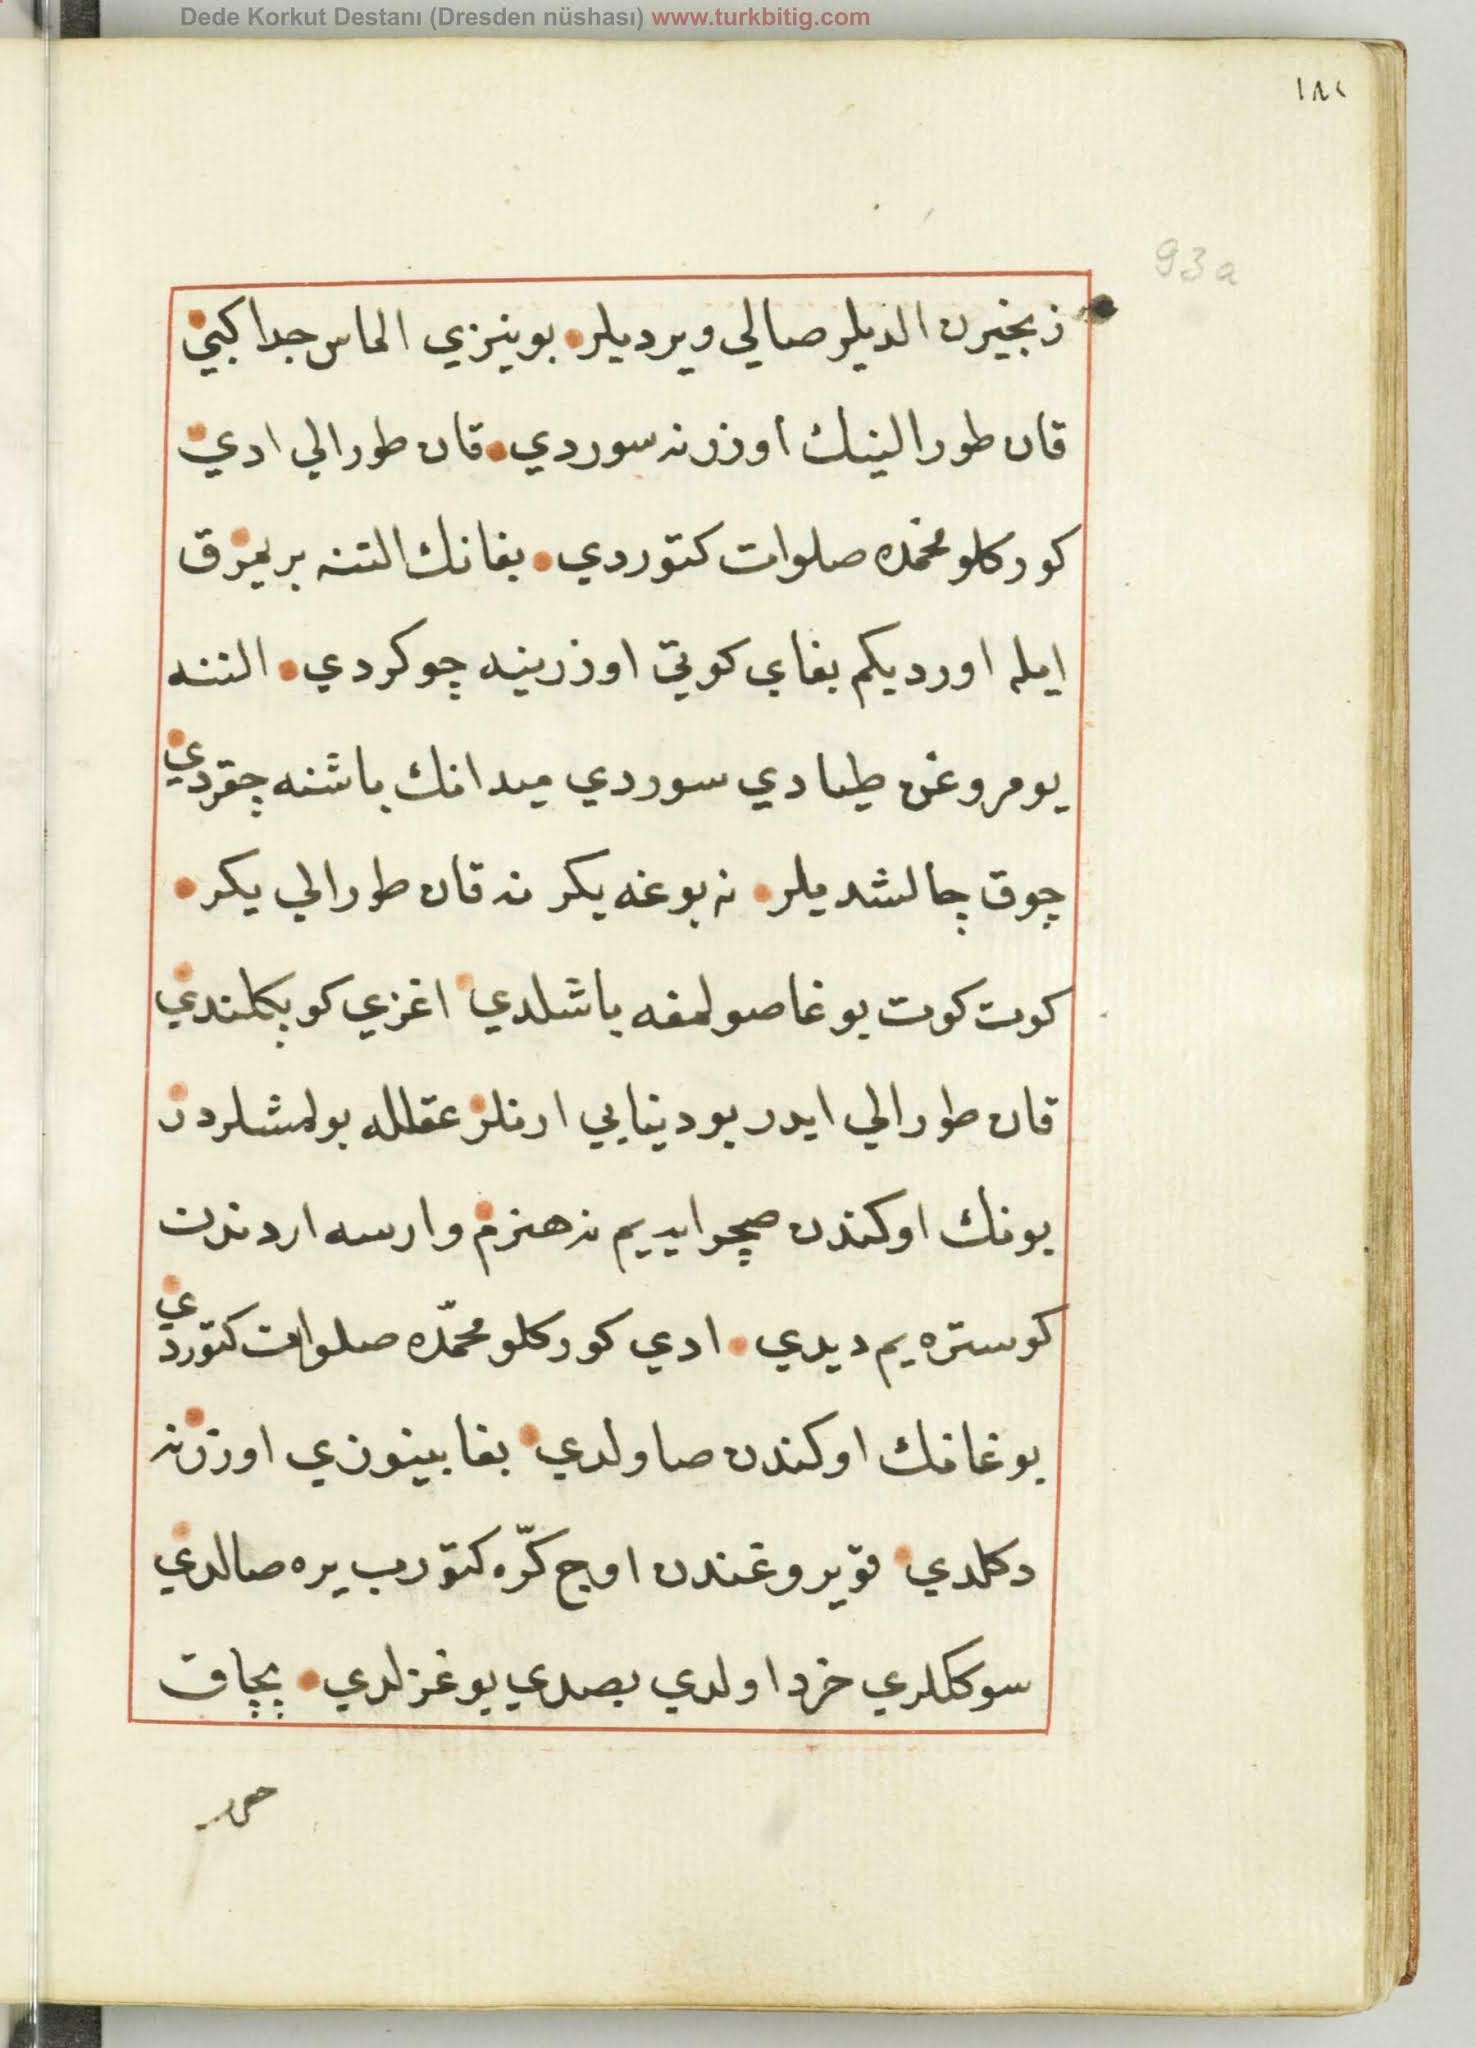 Dede Korkut Destanı (Dresden nüshası) www.turkbitig.com
١٨٢
93a
زنجيرن الديلر صالي ويرديلر بوينزي الماس جدا كبي
قان طورالينك اوزرنه سوردي قان طورالي ادي
كوركلو محمده صلوات كتوردي بغانك التنه بر يمزق
ايله اورديكم بغاي كوتي اوزرينه چوكردي التنه
يومروغن طيادي سوردي ميدانك باشنه چقردي
چوق چالشديلر نه بوغه يكر نه قان طورالي يكر
كوت كوت بوغا صولمغه باشلدي اغزي كوپكلندي
قان طورالي ايدر بو دنيايي ارنلر عقلله بولمشلردر
بونك اوكندن صچرايه يم نه هنرم وارسه اردندن
كوستره يم ديدي ادي كوركلو محمّده صلوات كتوردي
بوغانك اوكندن صاولدي بغا بينوزي اوزرنه
دكلدي قويروغندن اوچ كرّه كتورب يره صالدي
سوككلري خرد اولدي بصدي بوغزلدي پچاق